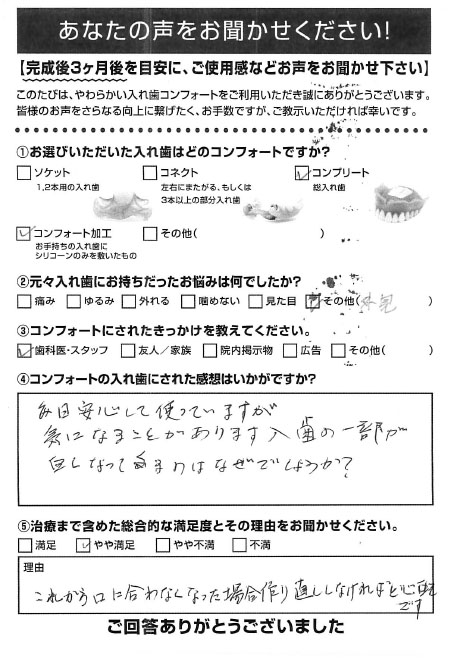 あなたの声をお聞かせください!
【完成後3ヶ月後を目安に、ご使用感などお声をお聞かせ下さい】
このたびは、やわらかい入れ歯コンフォートをご利用いただき誠にありがとうございます。
皆様のお声をさらなる向上に繋げたく、お手数ですが、ご教示いただければ幸いです。
①お選びいただいた入れ歯はどのコンフォートですか?
ソケット
1,2本用の入れ歯
コネクト
左右にまたがる、もしくは
3本以上の部分入れ歯
コンプリート
総入れ歯
コンフォート加工
お手持ちの入れ歯に
シリコーンのみを敷いたもの
その他( )
②元々入れ歯にお持ちだったお悩みは何でしたか?
痛み ゆるみ 外れる 噛めない 見た目 その他( )
③コンフォートにされたきっかけを教えてください。
歯科医・スタッフ 友人/家族 院内掲示物 広告 その他( )
④コンフォートの入れ歯にされた感想はいかがですか?
毎日安心して使っていますが
気になることがあります入歯の一部が
白くなってくるのはなぜでしょうか?
⑤治療まで含めた総合的な満足度とその理由をお聞かせください。
満足 やや満足 やや不満 不満
理由
これから口に合わなくなった場合作り直ししなければと心配
です
ご回答ありがとうございました